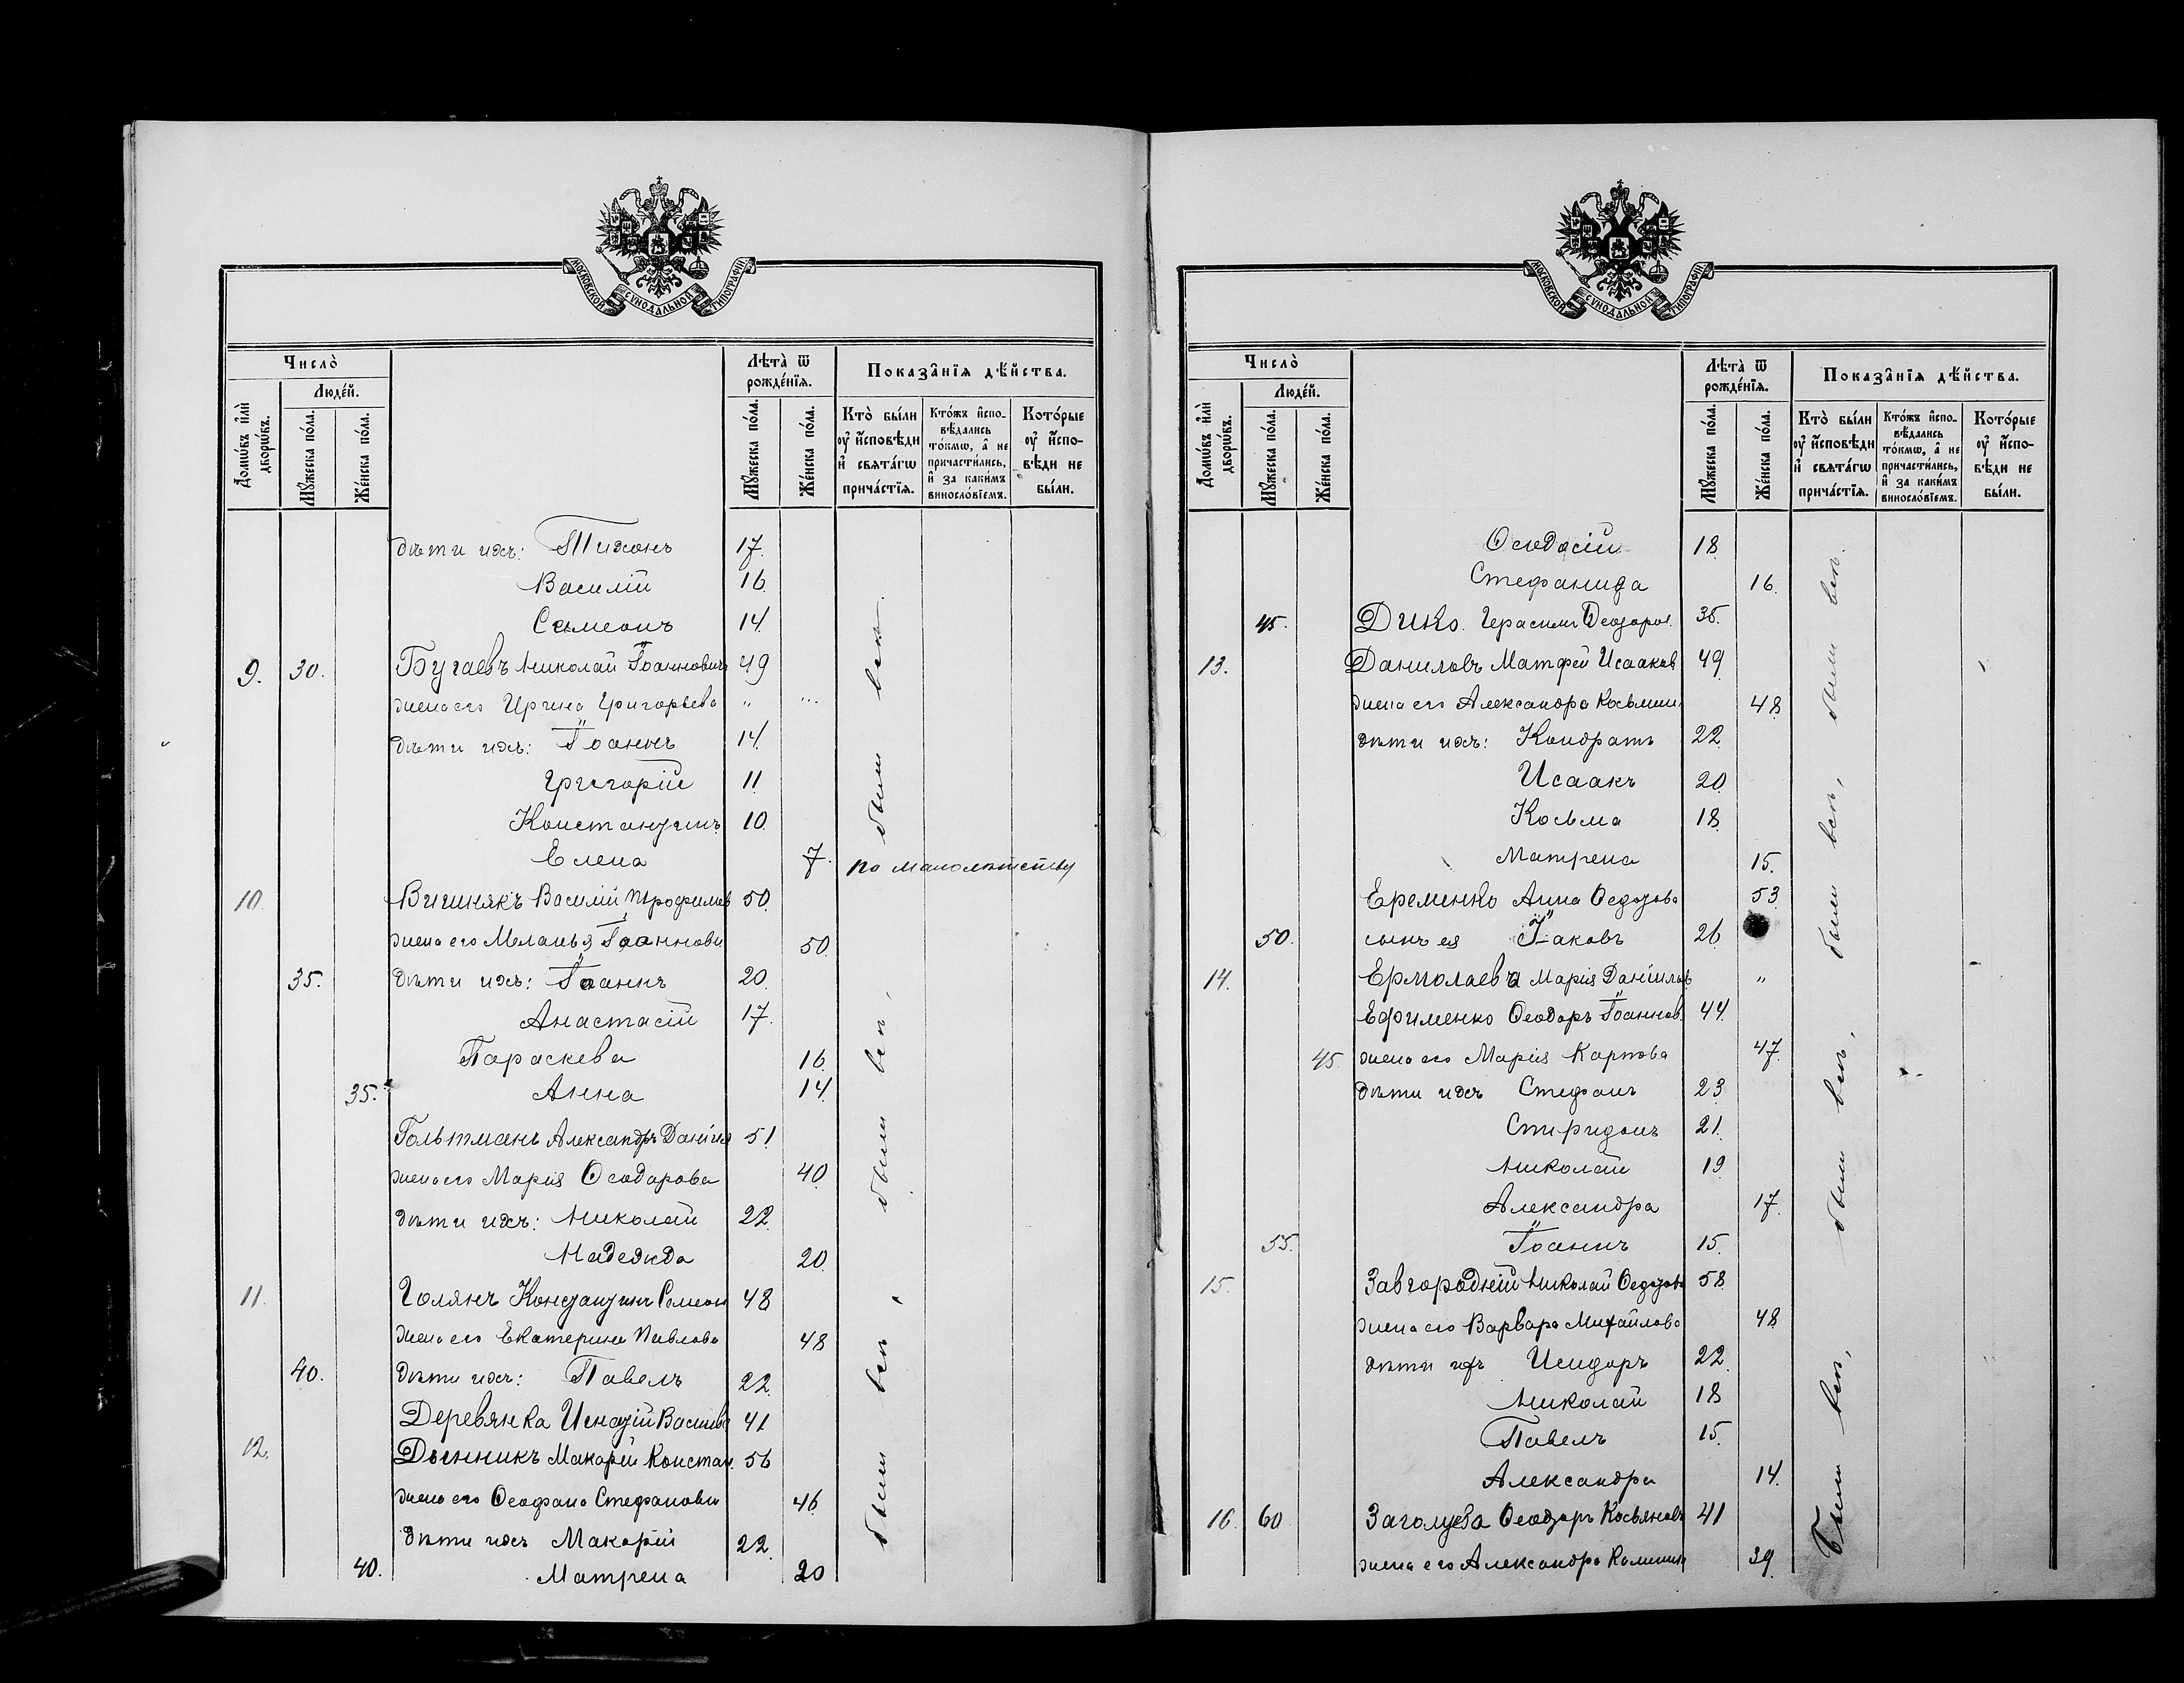 МОСКОВСКОЙ СѴНОДАЛЬНОЙ ТИПОГРАФІИ
Число̀
Людéй.
Домѡ́въ и҆лѝ дворѡ́въ.
Мꙋ́жеска по́ла.
Же́нска по́ла.
Лѣта̀ ѿ рожде́нїѧ.
Мꙋ́жеска по́ла.
Же́нска по́ла.
Показа̑нїѧ дѣ́йства.
Кто̀ бы́ли оу҆ и҆́сповѣди и҆ свѧта́гѡ прича́стїѧ.
Кто́жъ и҆спо-
вѣ́дались
то́кмѡ, а҆ не
причасти́лись,
и҆ за каки́мъ
виносло́вїемъ.
Кото́рые
оу҆ и҆́спо-
вѣди не
бы́ли.
дѣти ихъ: Тихонъ 17.
Василій 16.
Сѵмеонъ 14.
9. 30. Бугаевъ Николай Іоанновичъ 49
жена его Ирина Григорьева " ...
дѣти ихъ: Іоаннъ 14.
Григорій 11.
Константинъ 10.
Елена 7. по малолѣтству
были всѣ.
10. Вишнякъ Василій Трофимов 50.
жена его Меланья Іоаннови 50.
35. дѣти ихъ: Іоаннъ 20.
Анастасій 17.
Параскева 16.
35. Анна 14.
Гольтманъ Александръ Даніил 51
жена его Марія Ѳеодорова 40.
дѣти ихъ: Николай 22.
Надежда 20.
были всѣ,
11. Голянъ Константинъ Семеон 48
жена его Екатерина Павлова 48
40. дѣти ихъ: Павелъ 22.
Деревянка Игнатій Василье 41
12. Дынникъ Макарій Констан. 56
жена его Ѳеофана Стефанови 46.
дѣти ихъ Макарій 22.
40. Матрена 20
были всѣ,
МОСКОВСКОЙ СѴНОДАЛЬНОЙ ТИПОГРАФІИ
Число̀
Людéй.
Домѡ́въ и҆лѝ дворѡ́въ.
Мꙋ́жеска по́ла.
Же́нска по́ла.
Лѣта̀ ѿ рожде́нїѧ.
Мꙋ́жеска по́ла.
Же́нска по́ла.
Показа̑нїѧ дѣ́йства.
Кто̀ бы́ли оу҆ и҆́сповѣди и҆ свѧта́гѡ прича́стїѧ.
Кто́жъ и҆спо-
вѣ́дались
то́кмѡ, а҆ не
причасти́лись,
и҆ за каки́мъ
виносло́вїемъ.
Кото́рые
оу҆ и҆́спо-
вѣди не
бы́ли.
Ѳеодосій 18.
Стефанида 16.
45. Дико. Герасимъ Ѳеодоров. 35.
13. Даниловъ Матфей Исааков 49.
жена его Александра Косьмин 48.
были всѣ.
дѣти ихъ: Кондратъ 22.
Исаакъ 20.
Косьма 18.
Матрена 15.
Еременко Анна Ѳедотова 53.
50. сынъ ея Іаковъ 26.
были всѣ,
14. Ермолаева Марія Даніилов "
Ефименко Ѳеодоръ Іоаннов. 44.
45. жена его Марія Карпова 47.
дѣти ихъ Стефанъ 23.
Спиридонъ 21.
Николай 19
Александра 17.
55. Іоаннъ 15.
были всѣ,
15. Завгородній Николай Ѳедотов 58.
жена его Варвара Михайлова 48.
дѣти ихъ Исидоръ 22.
Николай 18
Павелъ 15.
Александра 14.
16. 60. Ѳеодоръ Косьяновъ 41
жена его Александра Калинин 39.
Были всѣ,